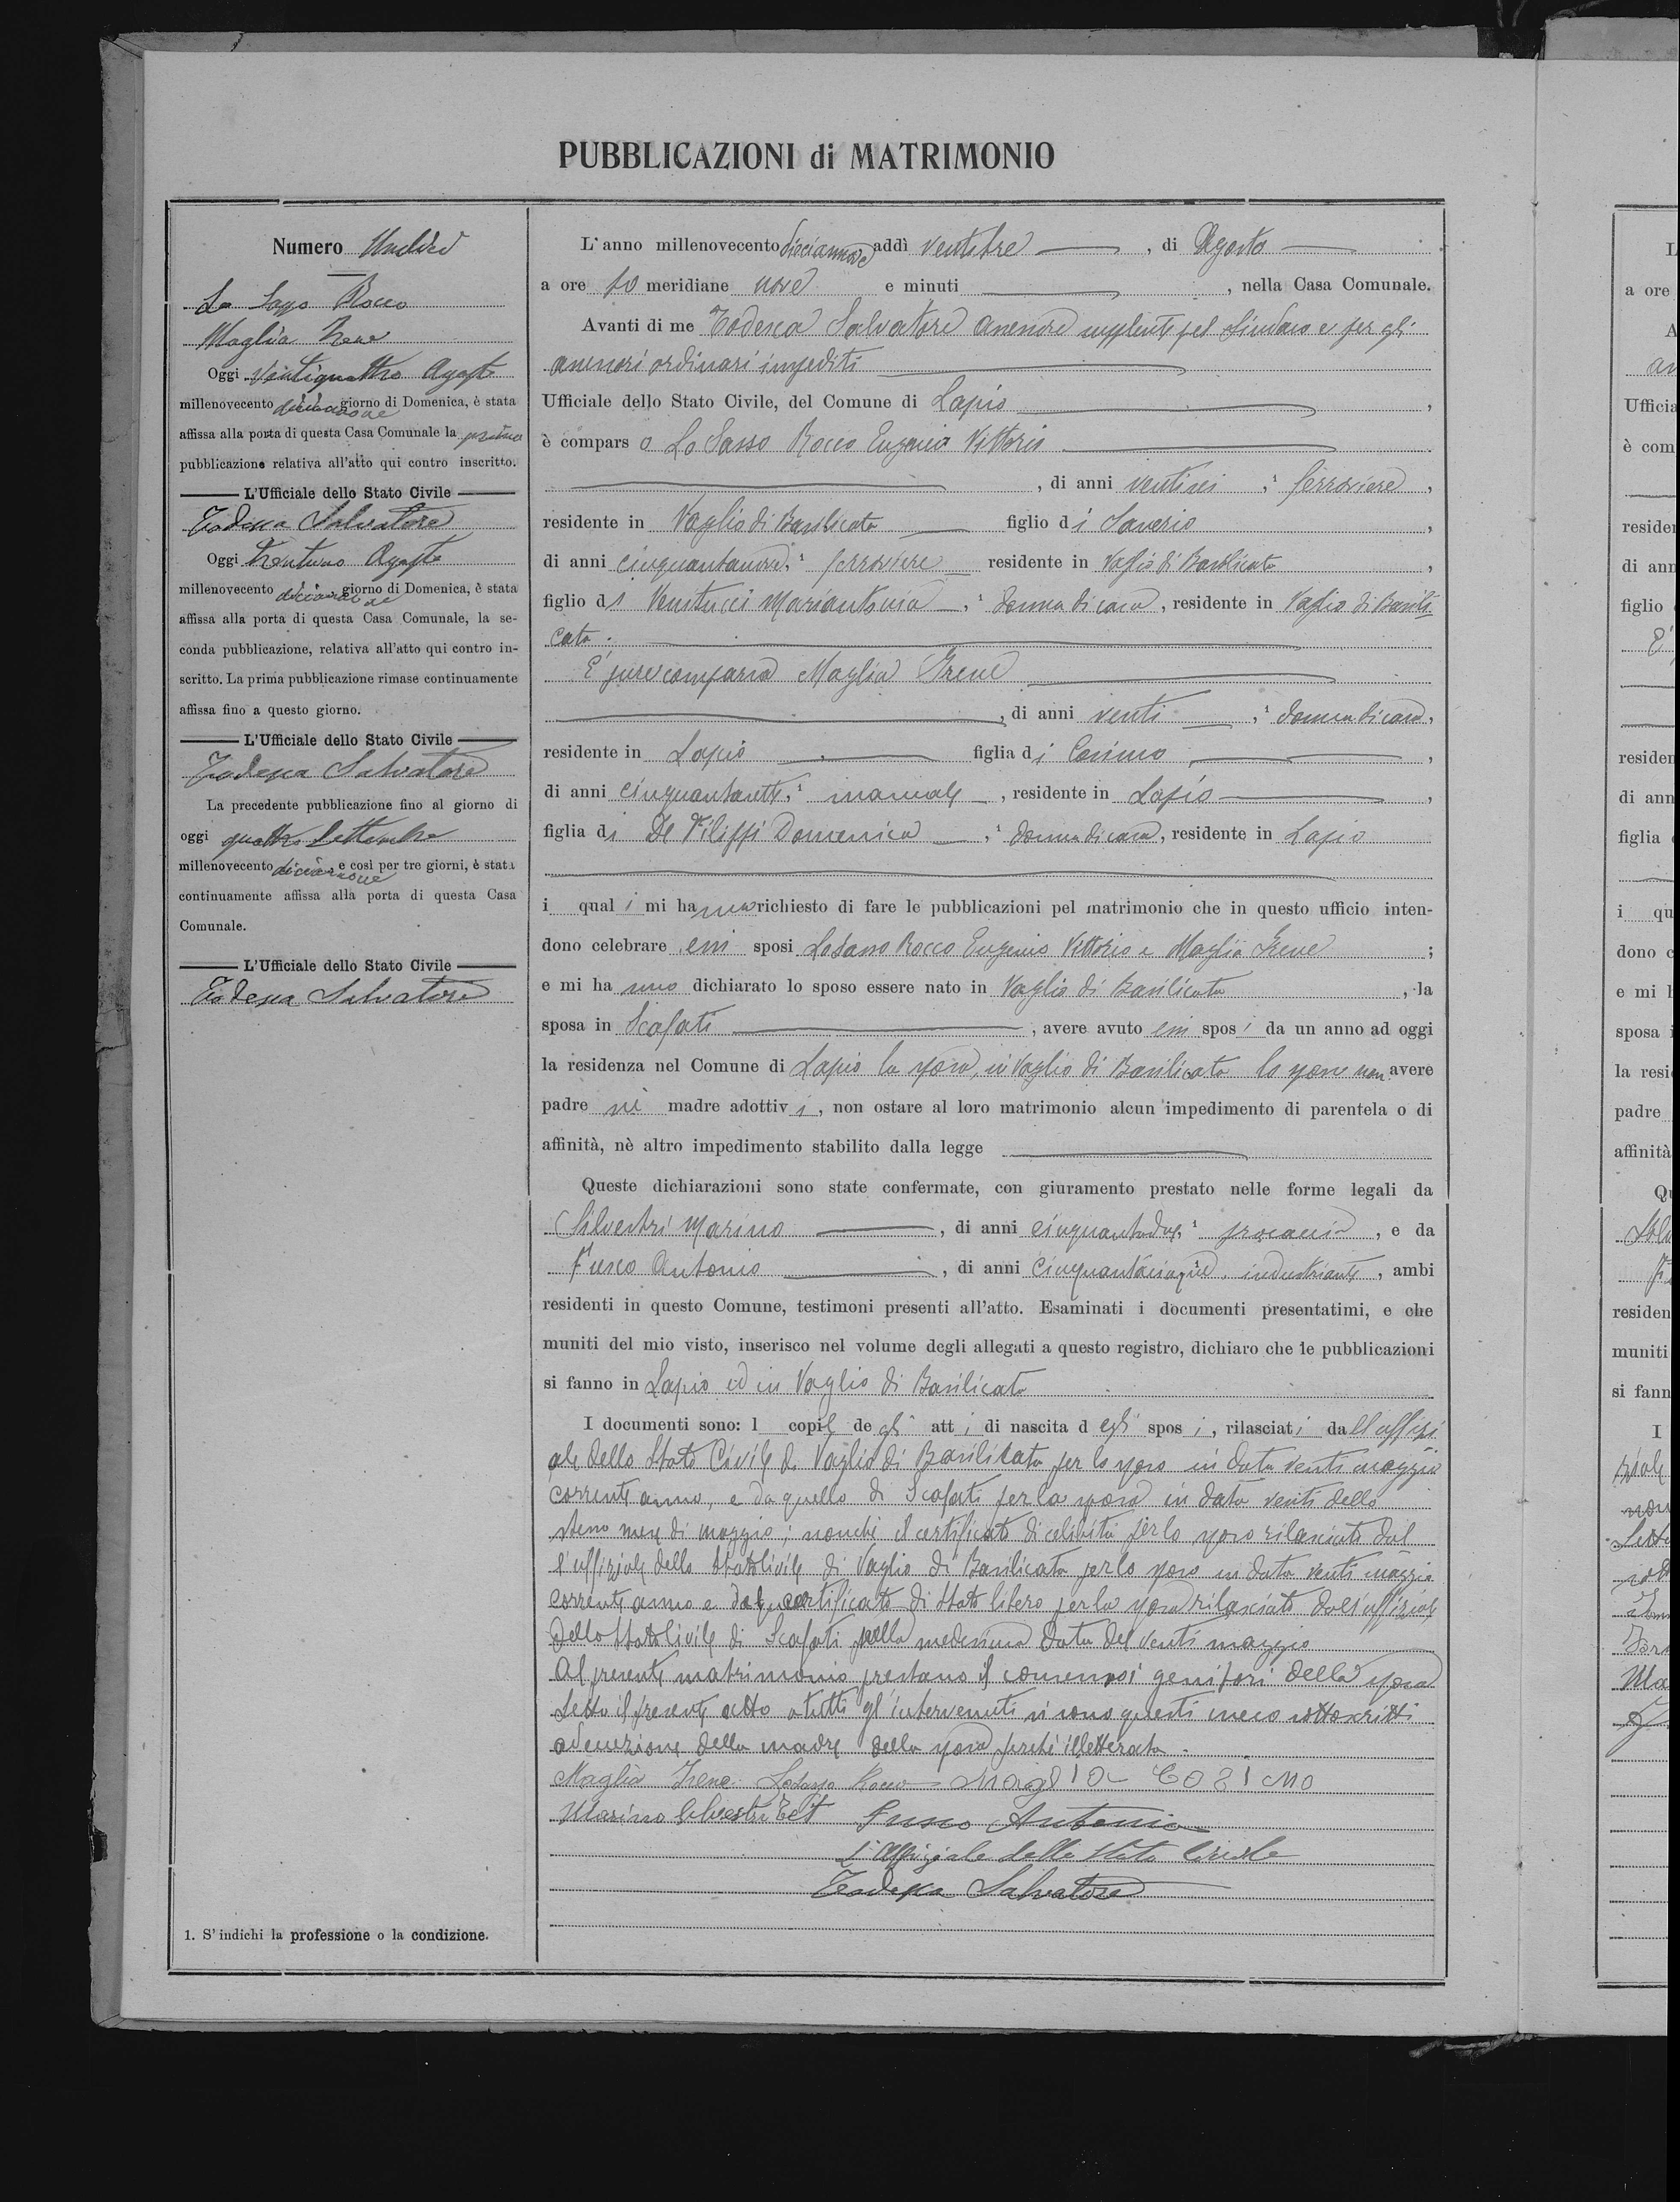 PUBBLICAZIONI di MATRIMONIO
Numero Undici
Lo Sasso Rocco
Maglia Irene
Oggi Ventiquattro Agosto
millenovecento diciannove giorno di Domenica, è stata
affissa alla porta di questa Casa Comunale la prima
pubblicazione relativa all'atto qui contro inscritto.
L'Ufficiale dello Stato Civile
Todesca Salvatore
Oggi trentuno Agosto
millenovecento diciannove giorno di Domenica, è stata
affissa alla porta di questa Casa Comunale, la se-
conda pubblicazione, relativa all'atto qui contro in-
scritto. La prima pubblicazione rimase continuamente
affissa fino a questo giorno.
L'Ufficiale dello Stato Civile
Todesca Salvatore
La precedente pubblicazione fino al giorno di
oggi quattro Settembre
millenovecento diciannove e così per tre giorni, è stata
continuamente affissa alla porta di questa Casa
Comunale.
L'Ufficiale dello Stato Civile
Todesca Salvatore
1. S'indichi la professione o la condizione.
L'anno millenovecento diciannove addì ventitre, di Agosto
a ore 10 meridiane nove e minuti , nella Casa Comunale.
Avanti di me Todesca Salvatore assessore supplente pel Sindaco e per gli
assessori ordinari impediti
Ufficiale dello Stato Civile, del Comune di Lapio,
è compars o Lo Sasso Rocco Eugenio Vittorio
, di anni ventisei, ¹ ferroviere,
residente in Vaglio di Basilicata figlio di Saverio,
di anni cinquantanove, ¹ ferroviere residente in Vaglio di Basilicata,
figlio di Mariantonia, ¹ donna di casa, residente in Vaglio di Basili-
cata.
E' pure comparsa Maglia Irene
, di anni venti, ¹ donna di casa,
residente in Lapio figlia di Cosimo,
di anni cinquantasette, ¹ manuale, residente in Lapio,
figlia di De Filippi Domenica, ¹ donna di casa, residente in Lapio
i quali mi hanno richiesto di fare le pubblicazioni pel matrimonio che in questo ufficio inten-
dono celebrare essi sposi Lo Sasso Rocco Eugenio Vittorio e Maglia Irene;
e mi hanno dichiarato lo sposo essere nato in Vaglio di Basilicata, la
sposa in Scafati, avere avuto essi sposi da un anno ad oggi
la residenza nel Comune di Lapio la sposa, in Vaglio di Basilicata lo sposo non avere
padre nè madre adottivi, non ostare al loro matrimonio alcun impedimento di parentela o di
affinità, nè altro impedimento stabilito dalla legge
Queste dichiarazioni sono state confermate, con giuramento prestato nelle forme legali da
Silvestri Marino, di anni cinquantadue, ¹ , e da
Fusco Antonio, di anni cinquantacinque, industriante, ambi
residenti in questo Comune, testimoni presenti all'atto. Esaminati i documenti presentatimi, e che
muniti del mio visto, inserisco nel volume degli allegati a questo registro, dichiaro che le pubblicazioni
si fanno in Lapio ed in Vaglio di Basilicata
I documenti sono: l copie degli atti di nascita degli sposi, rilasciati dall'uffizi
ale dello Stato Civile di Vaglio di Basilicata per lo sposo in data venti maggio
corrente anno, e da quello di Scafati per la sposa in data venti dello
stesso mese di maggio; nonchè il certificato di celibità per lo sposo rilasciato dal
l'uffiziale dello Stato Civile di Vaglio di Basilicata per lo sposo in data venti maggio
corrente anno e dal certificato di Stato libero per la sposa rilasciato dall'uffiziale
dello Stato Civile di Scafati nella medesima data del venti maggio
Al presente matrimonio prestano il consenso i genitori della sposa
Letto il presente atto a tutti gl'intervenuti si sono questi meco sottoscritti
ad eccezione della madre della sposa perchè illetterata.
Maglia Irene Losasso Rocco Maglia Cosimo
Marino Silvestri Test Fusco Antonio
L'Uffiziale dello Stato Civile
Todesca Salvatore